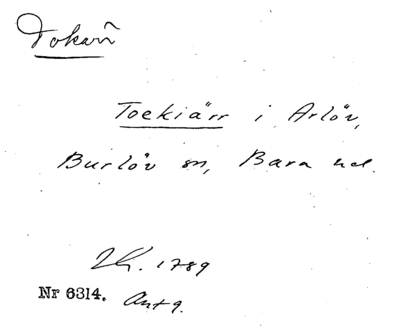 Toekiärr i Arlöv,
Burlöv sn, Bara hd.
1789
Nr 6314. Ant 9.